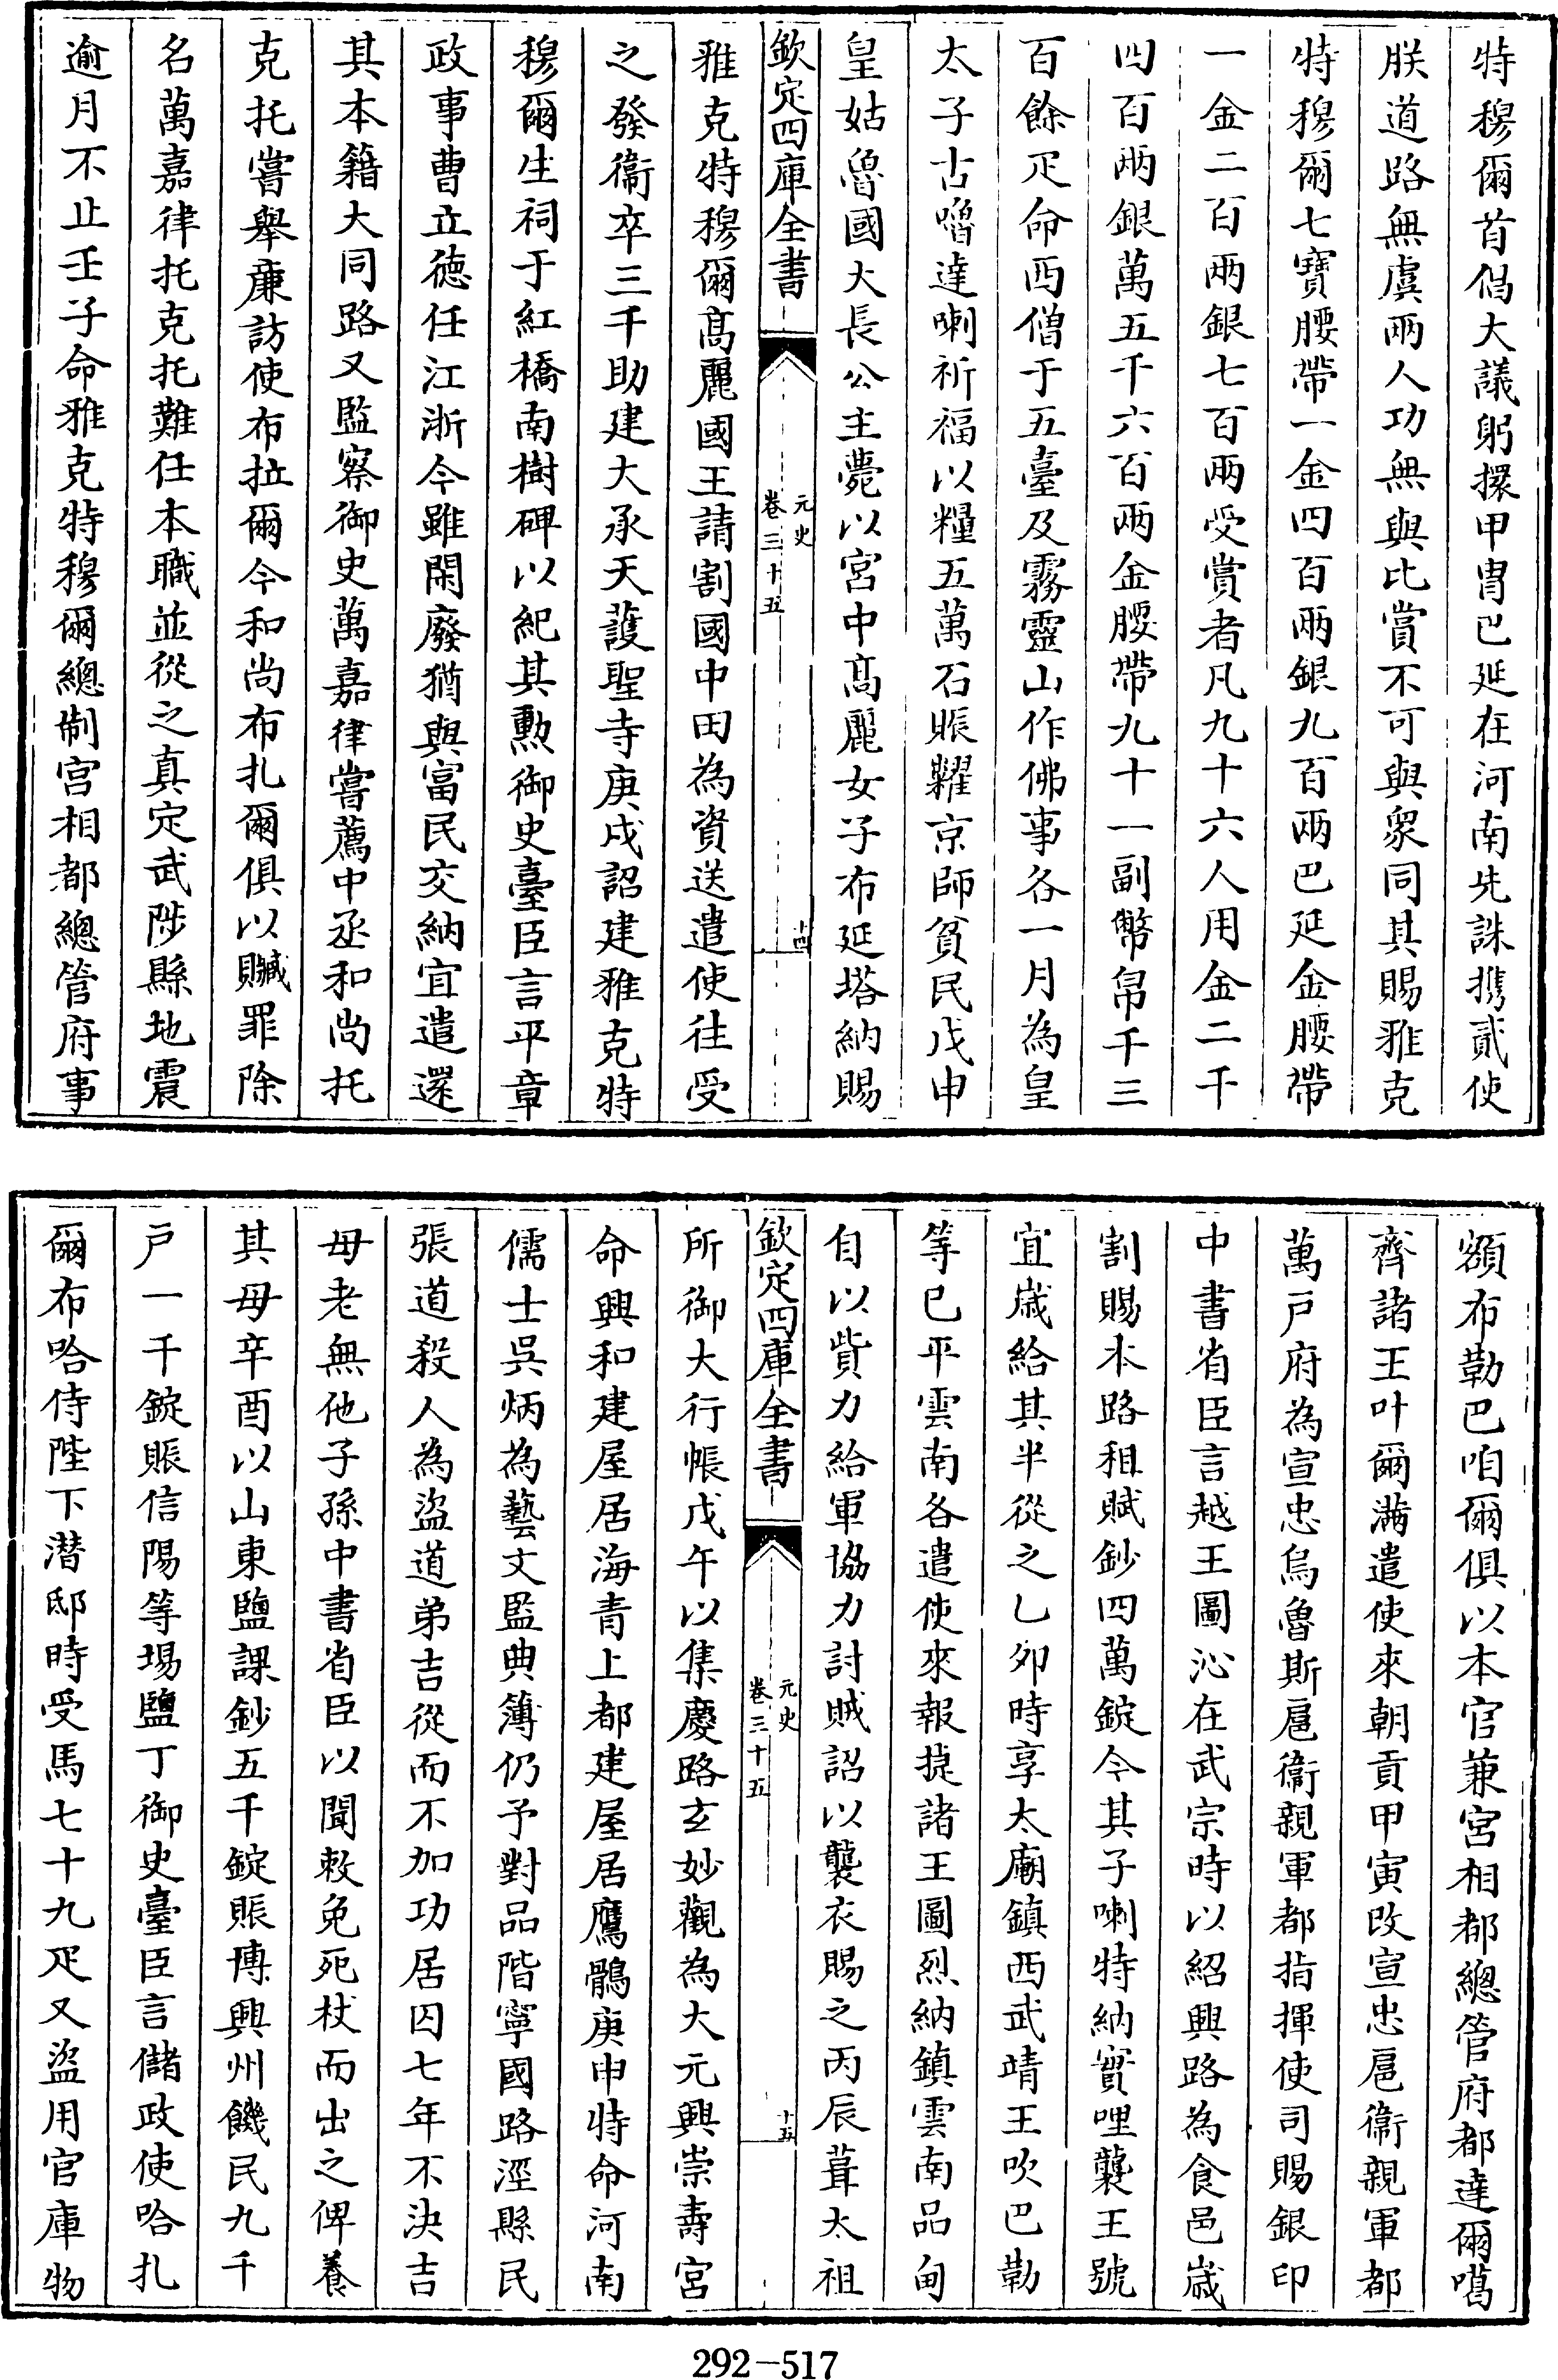 特穆爾首倡大議躬擐甲冑巴延在河南先誅攜貳使
朕道路無虞兩人功無與比賞不可與衆同其賜雅克
特穆爾七寶腰帶一金四百兩銀九百兩巴延金腰帶
一金二百兩銀七百兩受賞者凡九十六人用金二千
四百兩銀萬五千六百兩金腰帶九十一副幣帛千三
百餘疋命西僧于五臺及霧靈山作佛事各一月為皇
太子古嚕達喇祈福以糧五萬石賑糶京師貧民戊申
皇姑魯國大長公主薨以宮中高麗女子布延塔納賜
欽定四庫全書
元史
卷三十五
十四
雅克特穆爾高麗國王請割國中田為資送遣使往受
之發衞卒三千助建大承天護聖寺庚戌詔建雅克特
穆爾生祠于紅橋南樹碑以紀其勲御史臺臣言平章
政事曹立德任江浙今雖閑廢猶與富民交納宜遣還
其本籍大同路又監察御史萬嘉律嘗薦中丞和尚托
克托嘗舉廉訪使布拉爾今和尚布扎爾俱以贓罪除
名萬嘉律托克托難任本職並從之真定武陟縣地震
逾月不止壬子命雅克特穆爾總制宮相都總管府事
額布勒巴咱爾俱以本官兼宮相都總管府都達爾噶
齊諸王叶爾滿遣使來朝貢甲寅改宣忠扈衞親軍都
萬戸府為宣忠烏魯斯扈衞親軍都指揮使司賜銀印
中書省臣言越王圖沁在武宗時以紹興路為食邑歲
割賜本路租賦鈔四萬錠今其子喇特納實哩襲王號
宜歲給其半從之乙夘時享太廟鎮西武靖王吹巴勒
等已平雲南各遣使來報捷諸王圖烈納鎮雲南品甸
自以貲力給軍協力討賊詔以襲衣賜之丙辰葺太祖
欽定四庫全書
元史
卷三十五
十五
所御大行帳戊午以集慶路玄妙觀為大元興崇壽宮
命興和建屋居海青上都建屋居鷹鶻庚申特命河南
儒士吳炳為藝文監典簿仍予對品階寧國路涇縣民
張道殺人為盜道弟吉從而不加功居囚七年不決吉
母老無他子孫中書省臣以聞敕免死杖而出之俾養
其母辛酉以山東鹽課鈔五千錠賑博興州饑民九千
戸一千錠賑信陽等場鹽丁御史臺臣言儲政使哈扎
爾布哈侍陛下潛邸時受馬七十九疋又盜用官庫物
292-517